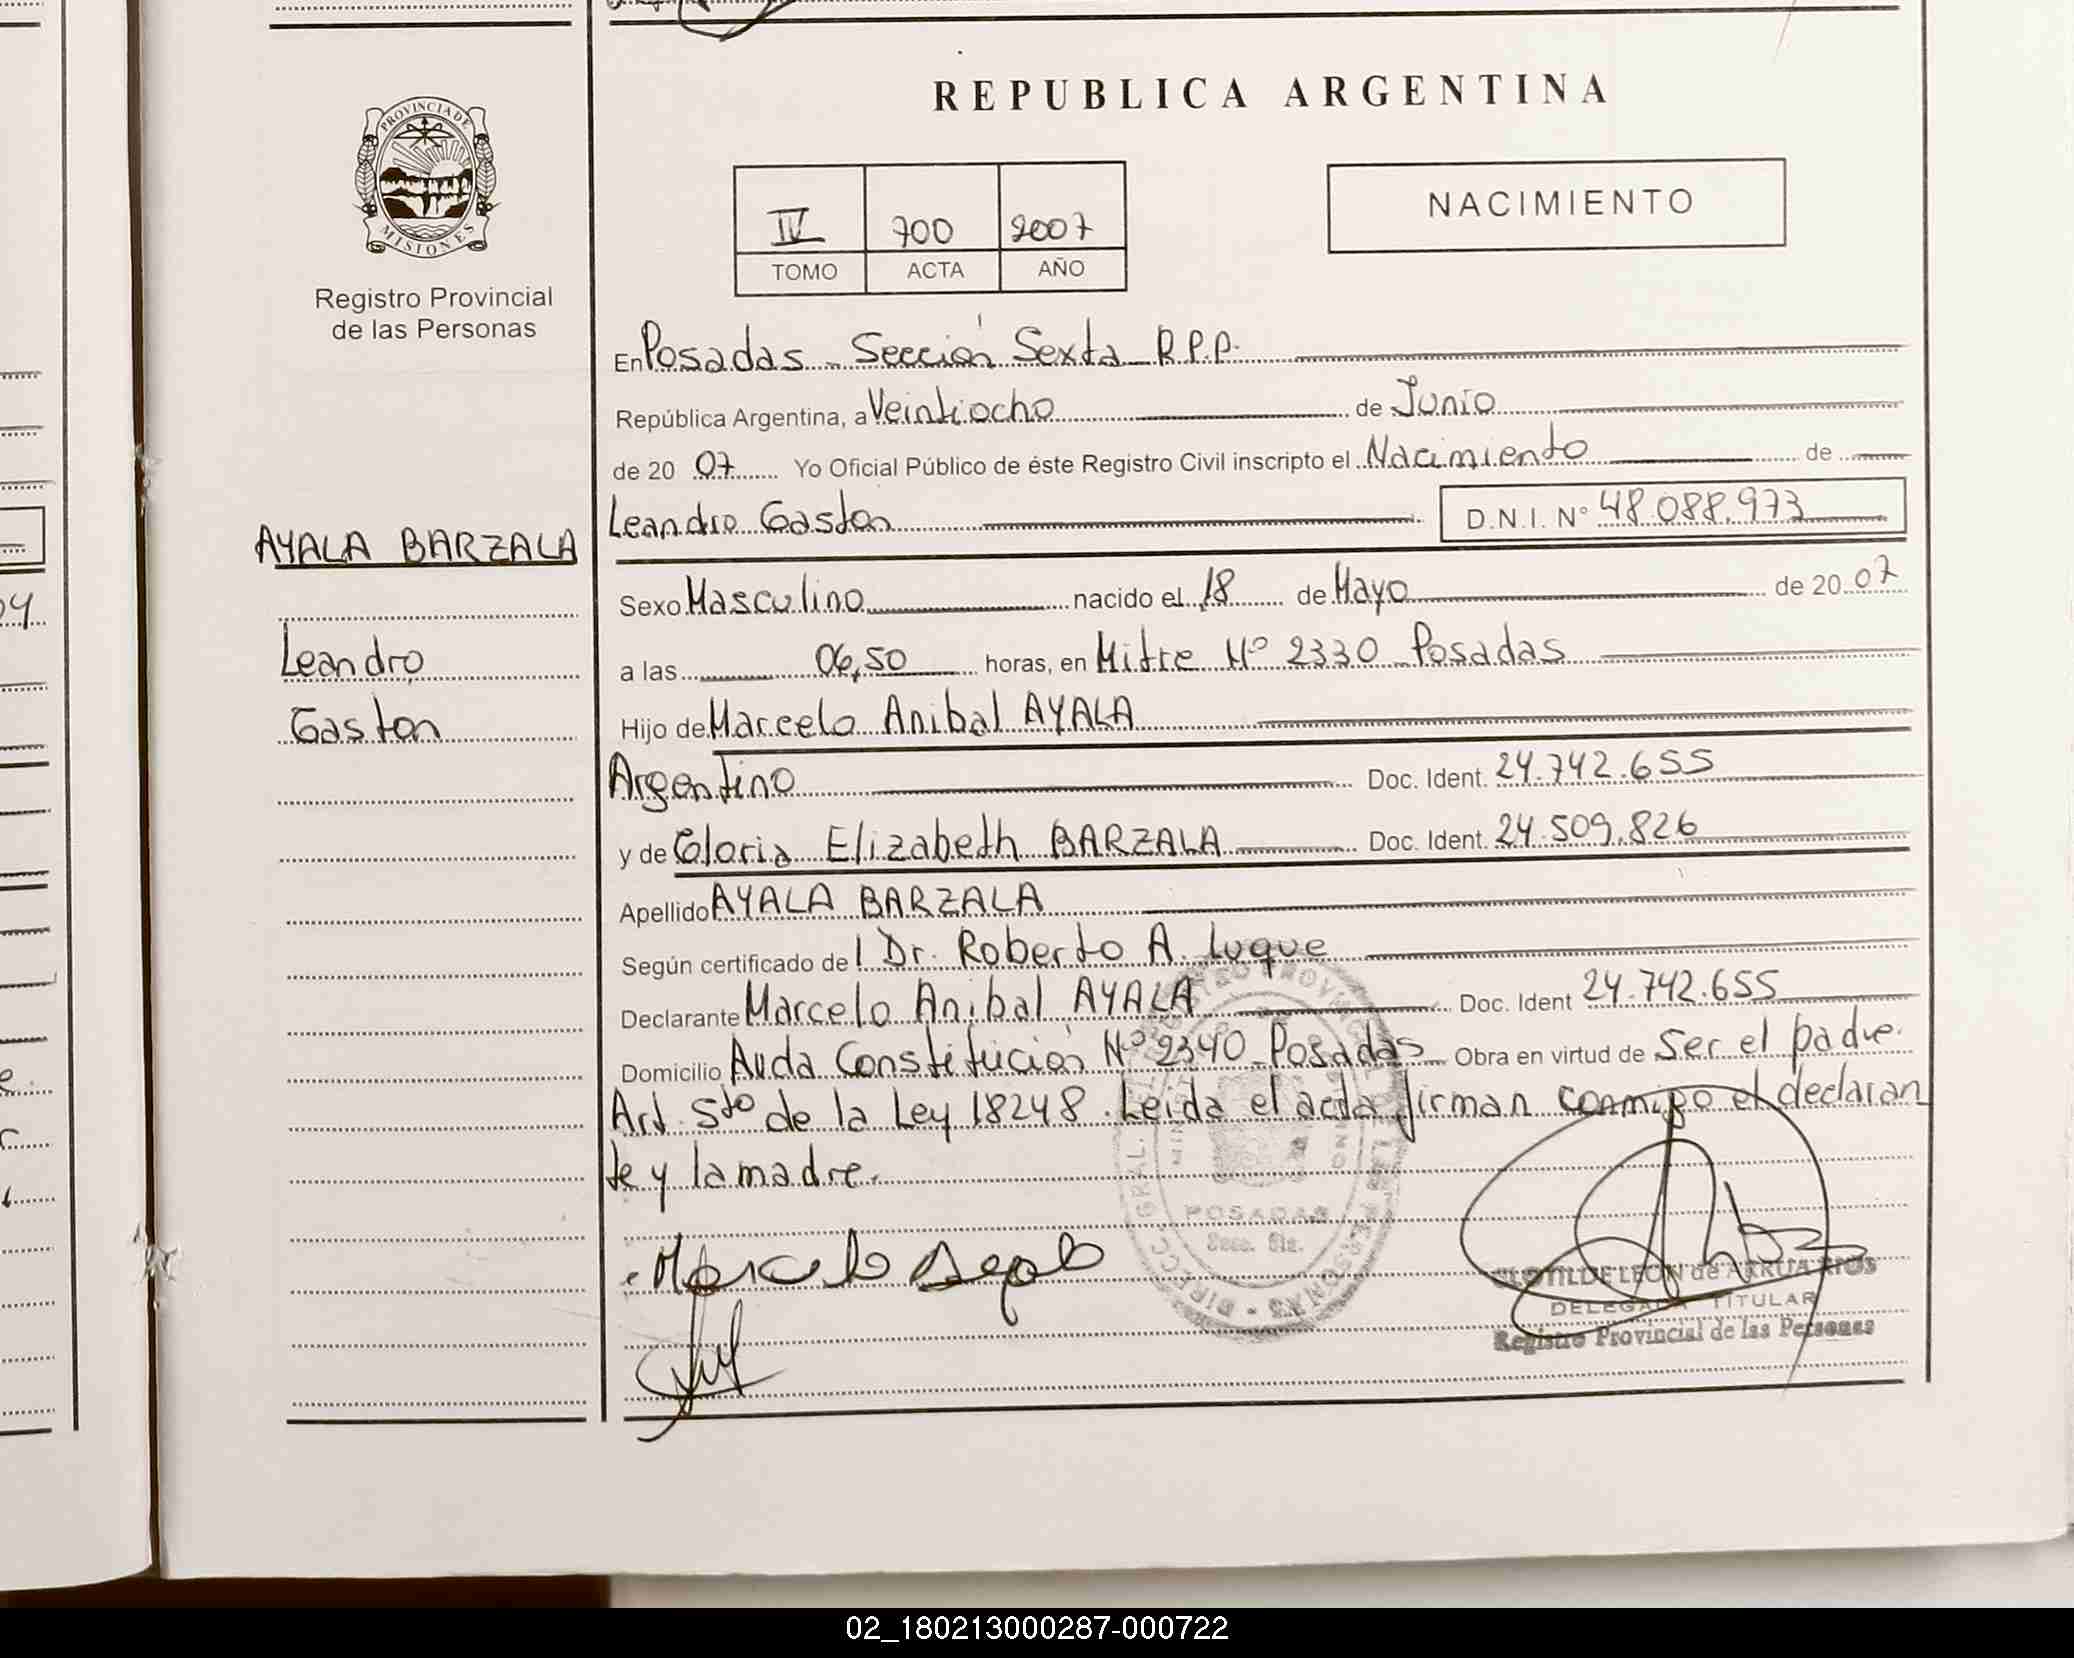 REPUBLICA ARGENTINA
PROVINCIA DE
MISIONES
Registro Provincial
de las Personas
IV 700 2007
TOMO ACTA AÑO
NACIMIENTO
En Posadas - Sección Sexta R.P.P.
República Argentina, a Veintiocho de Junio
de 20 07 Yo Oficial Público de éste Registro Civil inscripto el Nacimiento de
Leandro Gaston D.N.I. N° 48.088.973
AYALA BARZALA
Leandro
Gaston
Sexo Masculino nacido el 18 de Mayo de 20 07
a las 06,50 horas, en Mitre Nº 2330 Posadas
Hijo de Marcelo Anibal AYALA
Argentino Doc. Ident. 24.742.655
y de Gloria Elizabeth BARZALA Doc. Ident. 24.509.826
Apellido AYALA BARZALA
Según certificado de l Dr. Roberto A. Luque
Declarante Marcelo Anibal AYALA Doc. Ident 24.742.655
Domicilio Avda Constitución Nº 2340 Posadas Obra en virtud de Ser el padre.
Art. 5to de la Ley 18248. Leida el acta firman conmigo el declaran
te y la madre.
POSADAS
Secc. 6ta.
Marcelo Ayala
CLOTILDE LEON de ARRUA RIOS
DELEGADA TITULAR
Registro Provincial de las Personas
02_180213000287-000722